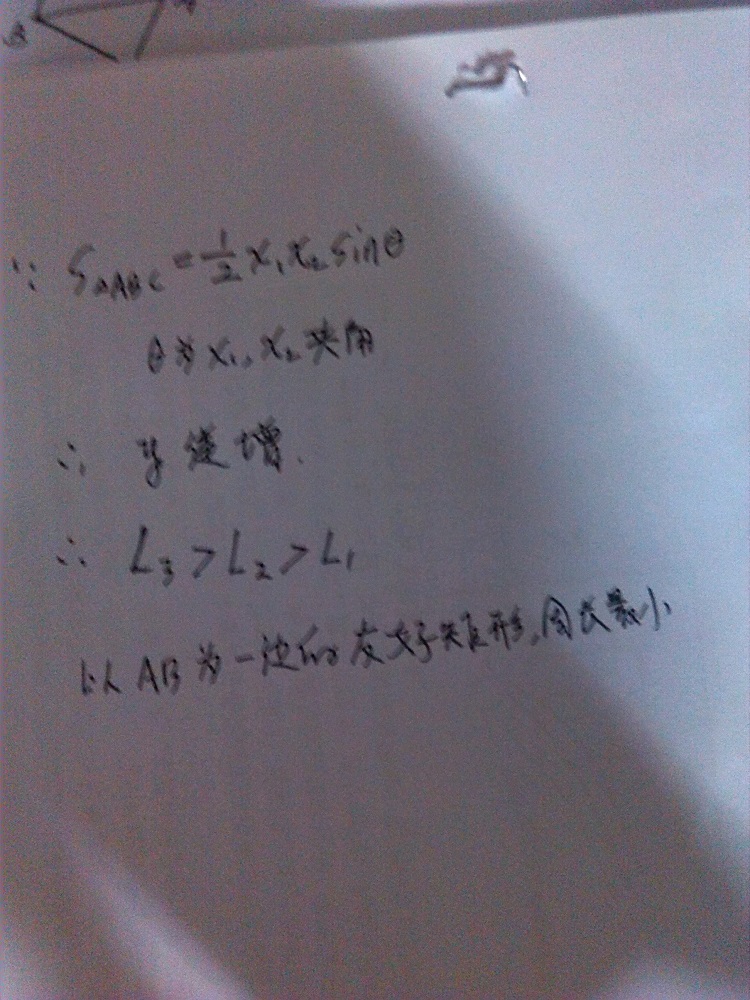 ∵ S△ABC = 1/2 x₁x₂ sinθ
θ为x₁,x₂夹角
∴ y递增.
∴ L₃ > L₂ > L₁
以AB为一边的友好矩形,周长最小